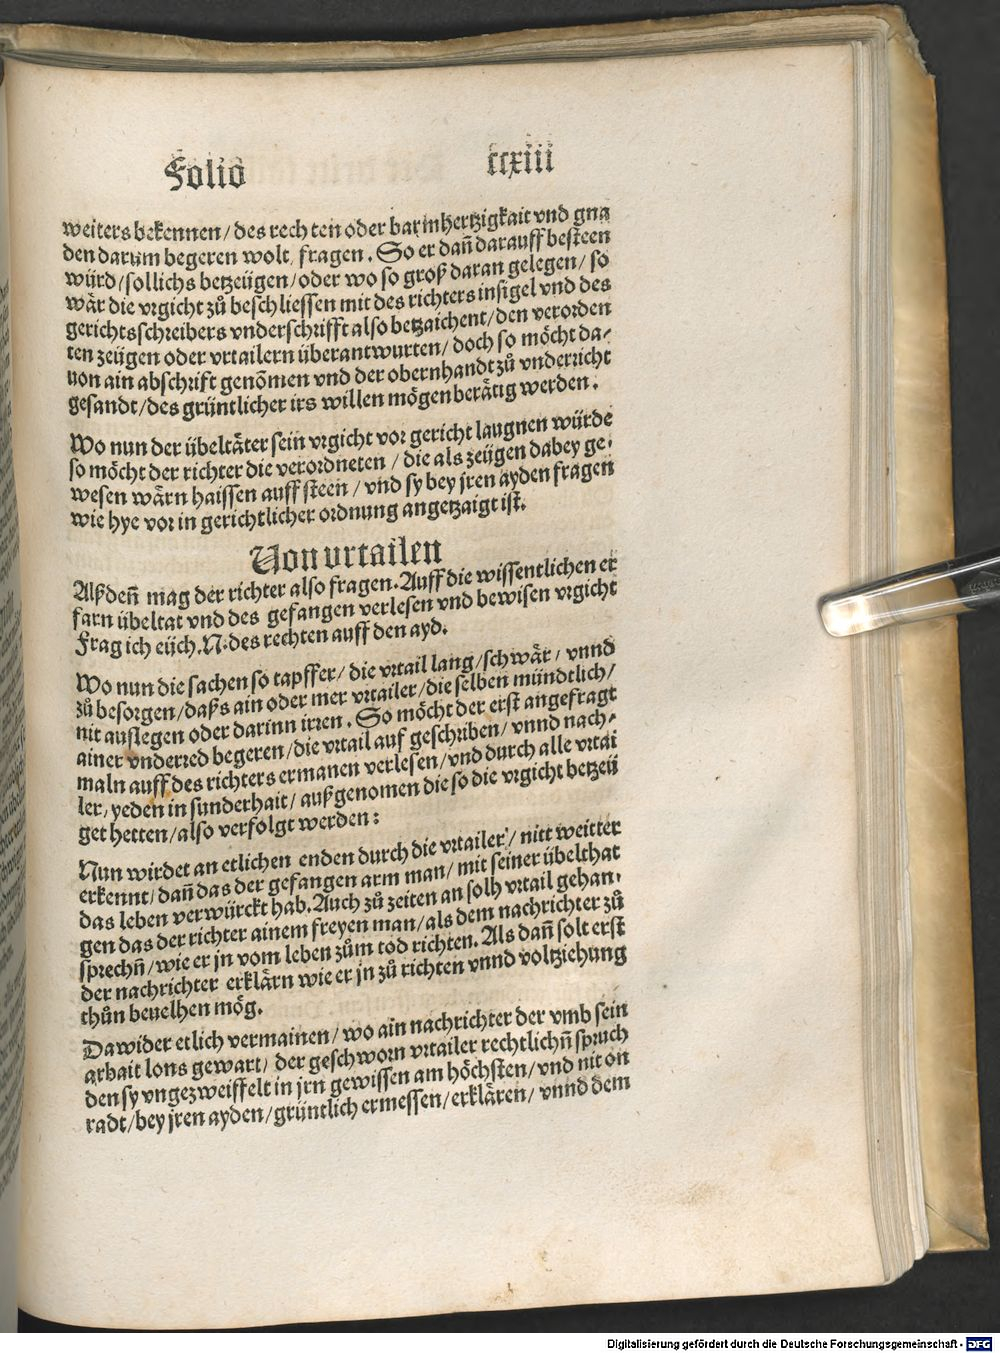 Folio ccxiii
weiters bekennen/ des rechten oder barmhertzigkait vnd gna
den darum begeren wolt, fragen. So er dañ darauff besteen
würd/ sollichs betzeügen/ oder wo so groß daran gelegen/ so
wär die vrgicht zů beschliessen mit des richters insigel vnd des
gerichtsschreibers vnderschrifft also betzaichent/ den verorden
ten zeügen oder vrtailern überantwurten/ doch so möcht da-
uon ain abschrift genõmen vnd der obernhandt zů vnderricht
gesandt/ des grüntlicher irs willen mögen berätig werden.
Wo nun der übeltäter sein vrgicht vor gericht laugnen würde
so möcht der richter die verordneten / die als zeügen dabey ge-
wesen wärn haissen auff steen / vnd sy bey jren ayden fragen
wie hye vor in gerichtlicher ordnung angetzaigt ist.
Von vrtailen
Alßdeñ mag der richter also fragen. Auff die wissentlichen er
farn übeltat vnd des gefangen verlesen vnd bewisen vrgicht
Frag ich eüch. N. des rechten auff den ayd.
Wo nun die sachen so tapffer/ die vrtail lang/ schwär/ vnnd
zů besorgen/ daß ain oder mer vrtailer/ die selben mündtlich/
nit auslegen oder darinn irren. So möcht der erst angefragt
ainer vnderred begeren/ die vrtail auf geschriben/ vnnd nach-
maln auff des richters ermanen verlesen/ vnd durch alle vrtai
ler/ yeden in sunderhait/ außgenomen die so die vrgicht betzeü
get hetten/ also verfolgt werden:
Nun wirdet an etlichen enden durch die vrtailer/ nitt weitter
erkennt/ dañ das der gefangen arm man/ mit seiner übelthat
das leben verwürckt hab. Auch zů zeiten an solh vrtail gehan-
gen das der richter ainem freyen man/ als dem nachrichter zů
sprechñ/ wie er jn vom leben zům tod richten. Als dañ solt erst
der nachrichter erklärn wie er jn zů richten vnnd voltziehung
thůn beuelhen mög.
Dawider etlich vermainen/ wo ain nachrichter der vmb sein
arbait lons gewart/ der geschworn vrtailer rechtlichñ spruch
den sy vngezweiffelt in jrn gewissen am höchsten/ vnd nit on
radt/ bey jren ayden/ grüntlich ermessen/ erklären/ vnnd dem
Digitalisierung gefördert durch die Deutsche Forschungsgemeinschaft - DFG